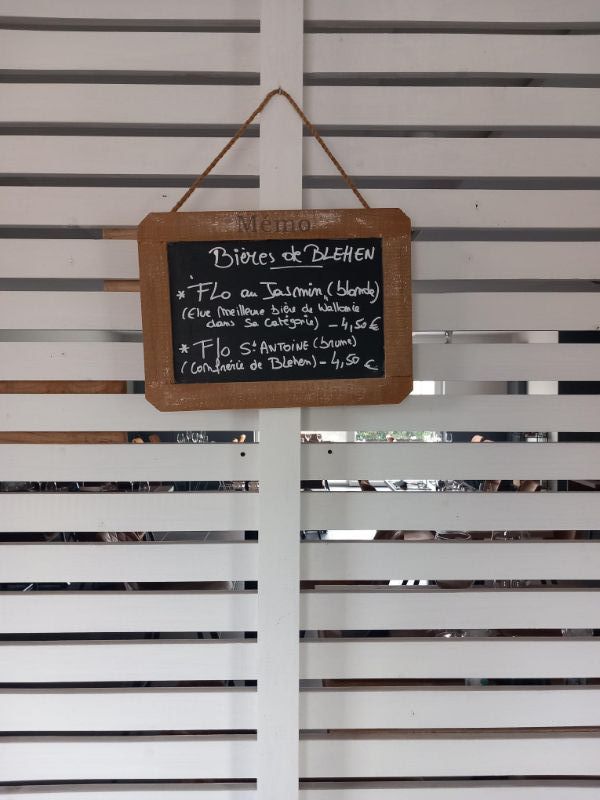 Mémo
Bières de BLEHEN
* "FLo au Jasmin" (blonde)
(Elue Meilleure bière de Wallonie
dans sa catégorie) - 4,50 €
* Flo St ANTOINE (brune)
(Confrérie de Blehen) - 4,50 €